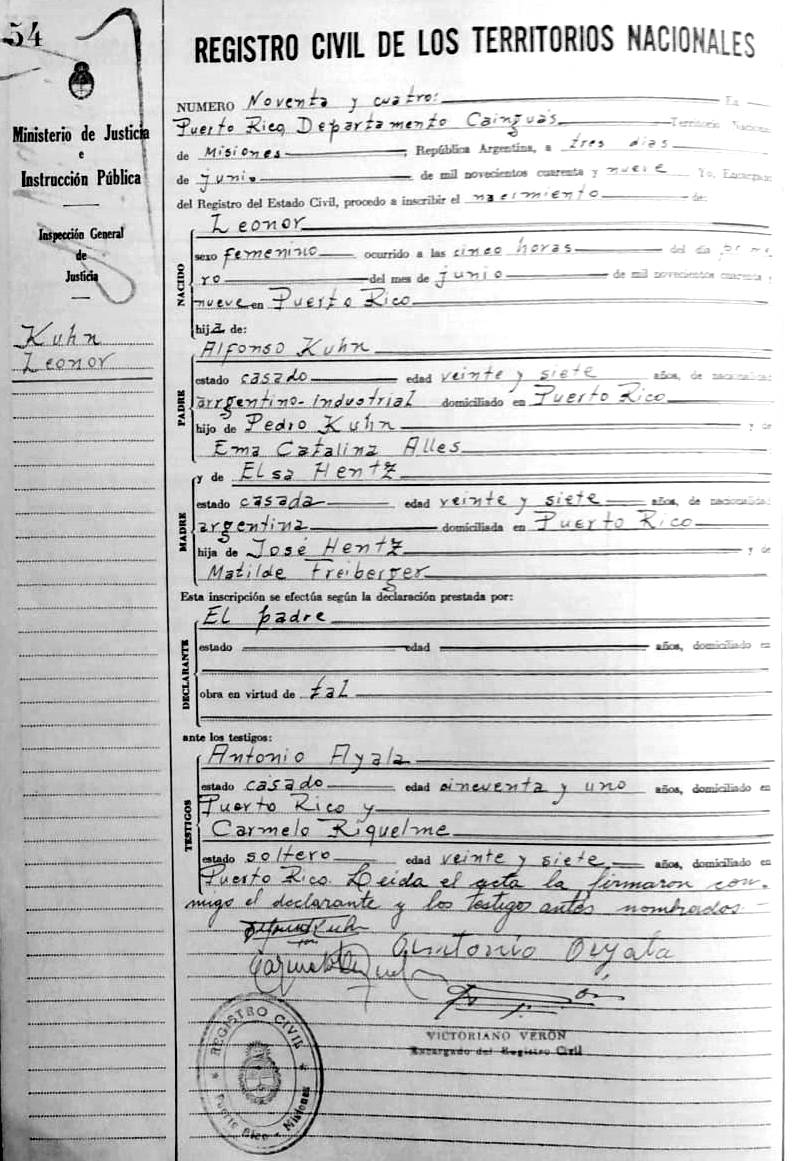 54
Ministerio de Justicia
e
Instrucción Pública
Inspección General
de
Justicia
Kuhn
Leonor
REGISTRO CIVIL DE LOS TERRITORIOS NACIONALES
NUMERO Noventa y cuatro: En
Puerto Rico, Departamento Cainguás Territorio Nacional
de Misiones, República Argentina, a tres dias
de junio de mil novecientos cuarenta y nueve Yo, Encargado
del Registro del Estado Civil, procedo a inscribir el nacimiento de:
NACIDO
Leonor
sexo femenino ocurrido a las cinco horas del día prime
ro del mes de junio de mil novecientos cuarenta y
nueve en Puerto Rico
hija de:
PADRE
Alfonso Kuhn
estado casado edad veinte y siete años, de nacionalidad
arrgentino-industrial domiciliado en Puerto Rico
hijo de Pedro Kuhn y de
Ema Catalina Alles
MADRE
y de Elsa Hentz
estado casada edad veinte y siete años, de nacionalidad
argentina domiciliada en Puerto Rico
hija de José Hentz y de
Matilde Freiberger
Esta inscripción se efectúa según la declaración prestada por:
DECLARANTE
El padre
estado edad años, domiciliado en
obra en virtud de tal
ante los testigos:
TESTIGOS
Antonio Ayala
estado casado edad cincuenta y uno años, domiciliado en
Puerto Rico y
Carmelo Riquelme
estado soltero edad veinte y siete. años, domiciliado en
Puerto Rico. Leida el acta la firmaron con-
migo el declarante y los testigos antes nombrados.-
Alfonso Kuhn
Antonio Ayala
VICTORIANO VERÓN
Encargado del Registro Civil
REGISTRO CIVIL
Puerto Rico - Misiones